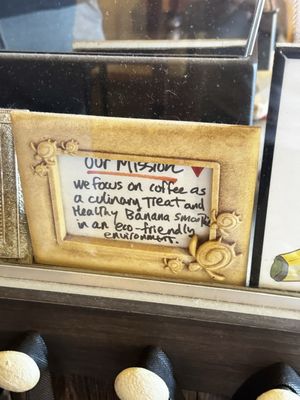 Our Mission
we focus on coffee as
a culinary Treat and
Healthy Banana smooth
in an eco-friendly
environment.